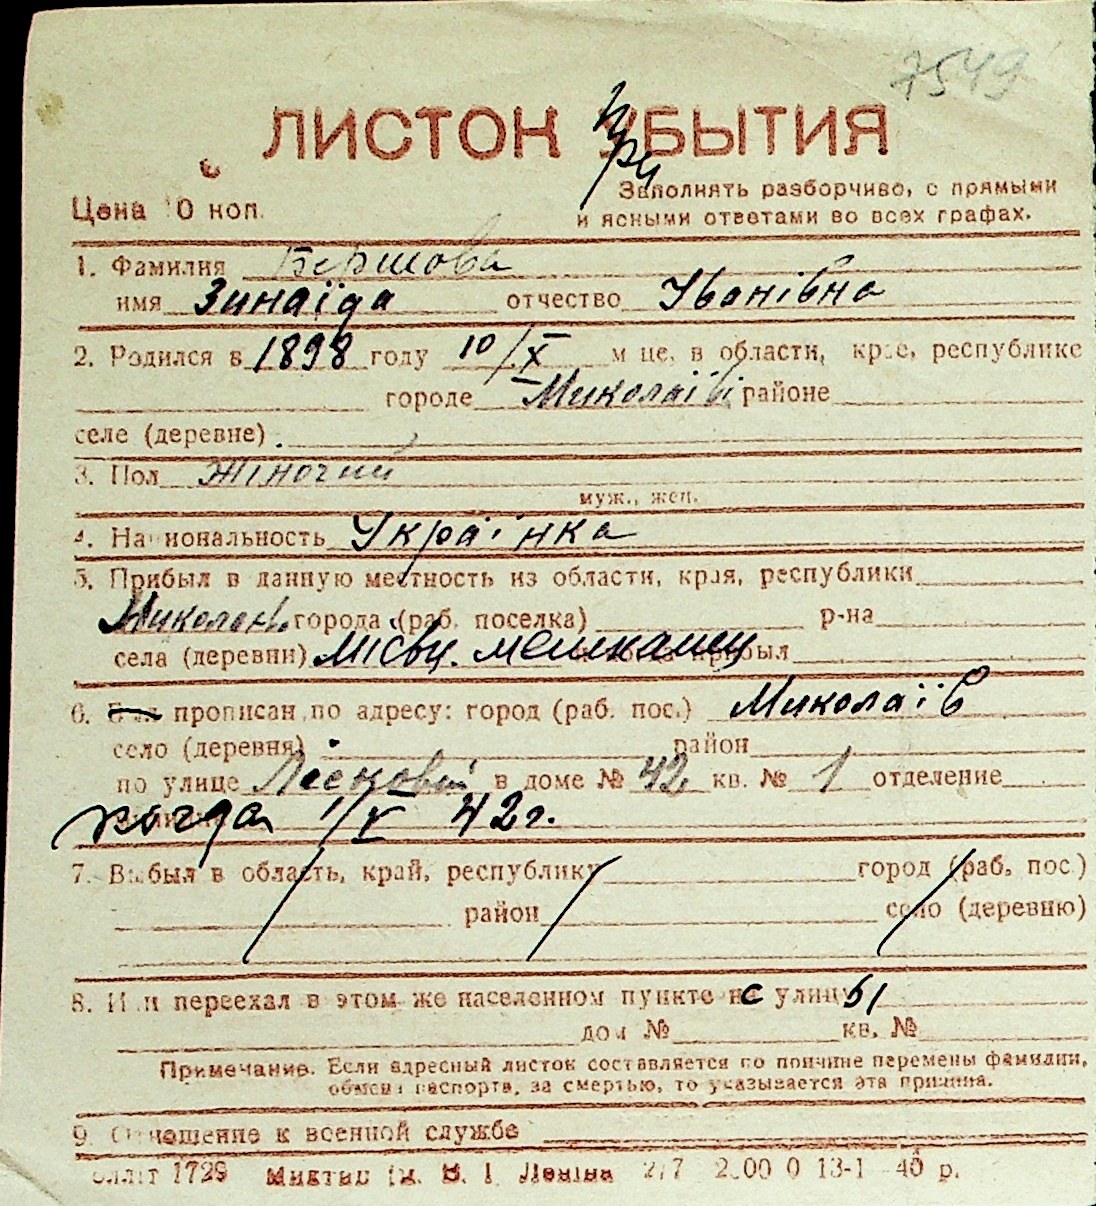 7549
ЛИСТОК ПриБЫТИЯ
Цена 10 коп.
Заполнять разборчиво, с прямыми
и ясными ответами во всех графах.
1. Фамилия Бершова
имя Зинаїда отчество Іванівна
2. Родился в 1898 году 10/X м-це, в области, крае, республике
городе Миколаїві районе
селе (деревне)
3. Пол Жіночий
муж., жен.
4. Национальность Українка
5. Прибыл в данную местность из области, края, республики
Миколаїв города (раб. поселка) р-на
села (деревни) Місвц. мешканец прибыл
6. Был прописан по адресу: город (раб. пос.) Миколаїв
село (деревня) район
по улице в доме № 42 кв. № 1 отделение
когда 1/V 42 г.
7. Выбыл в область, край, республику город (раб. пос.)
район село (деревню)
8. Или переехал в этом же населенном пункте с улицы
дом № кв. №
Примечание. Если адресный листок составляется по причине перемены фамилии,
обмена паспорта, за смертью, то указывается эта причина.
9. Отношение к военной службе
1729 В. І. Леніна 2/7 2000 0 13-1 40 р.